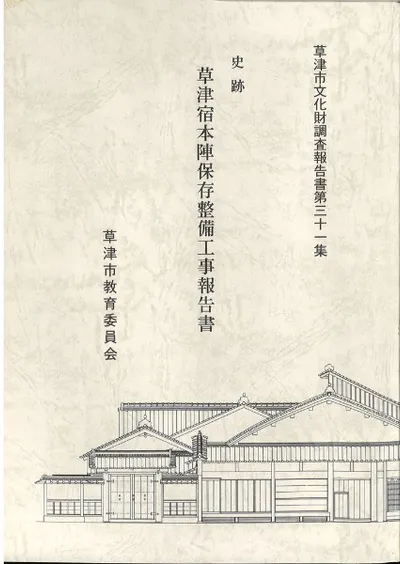 草津市文化財調査報告書第三十一集
史跡
草津宿本陣保存整備工事報告書
草津市教育委員会